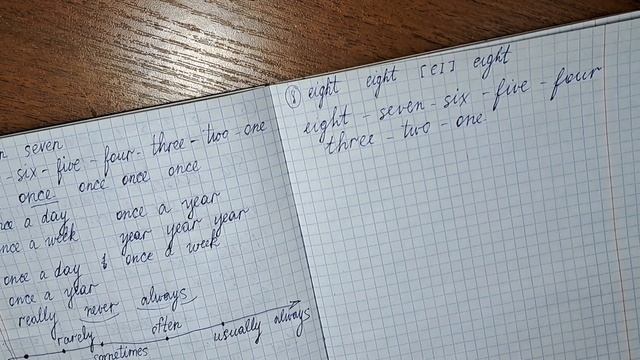 seven
-six - five - four - three - two - one
once once once once
a day once a year
a week year year year
once a day & once a week
once a year
really never always
rarely often usually always
sometimes
⑧ eight eight [eI] eight
eight - seven - six - five - four
three - two - one